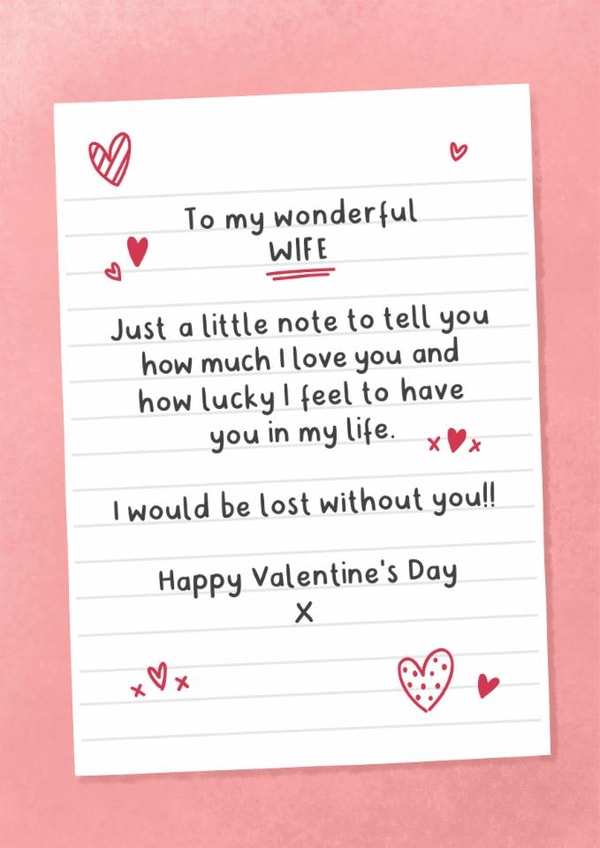 To my wonderful
WIFE
Just a little note to tell you
how much I love you and
how lucky I feel to have
you in my life.
x x
I would be lost without you!!
Happy Valentine's Day
X
x x